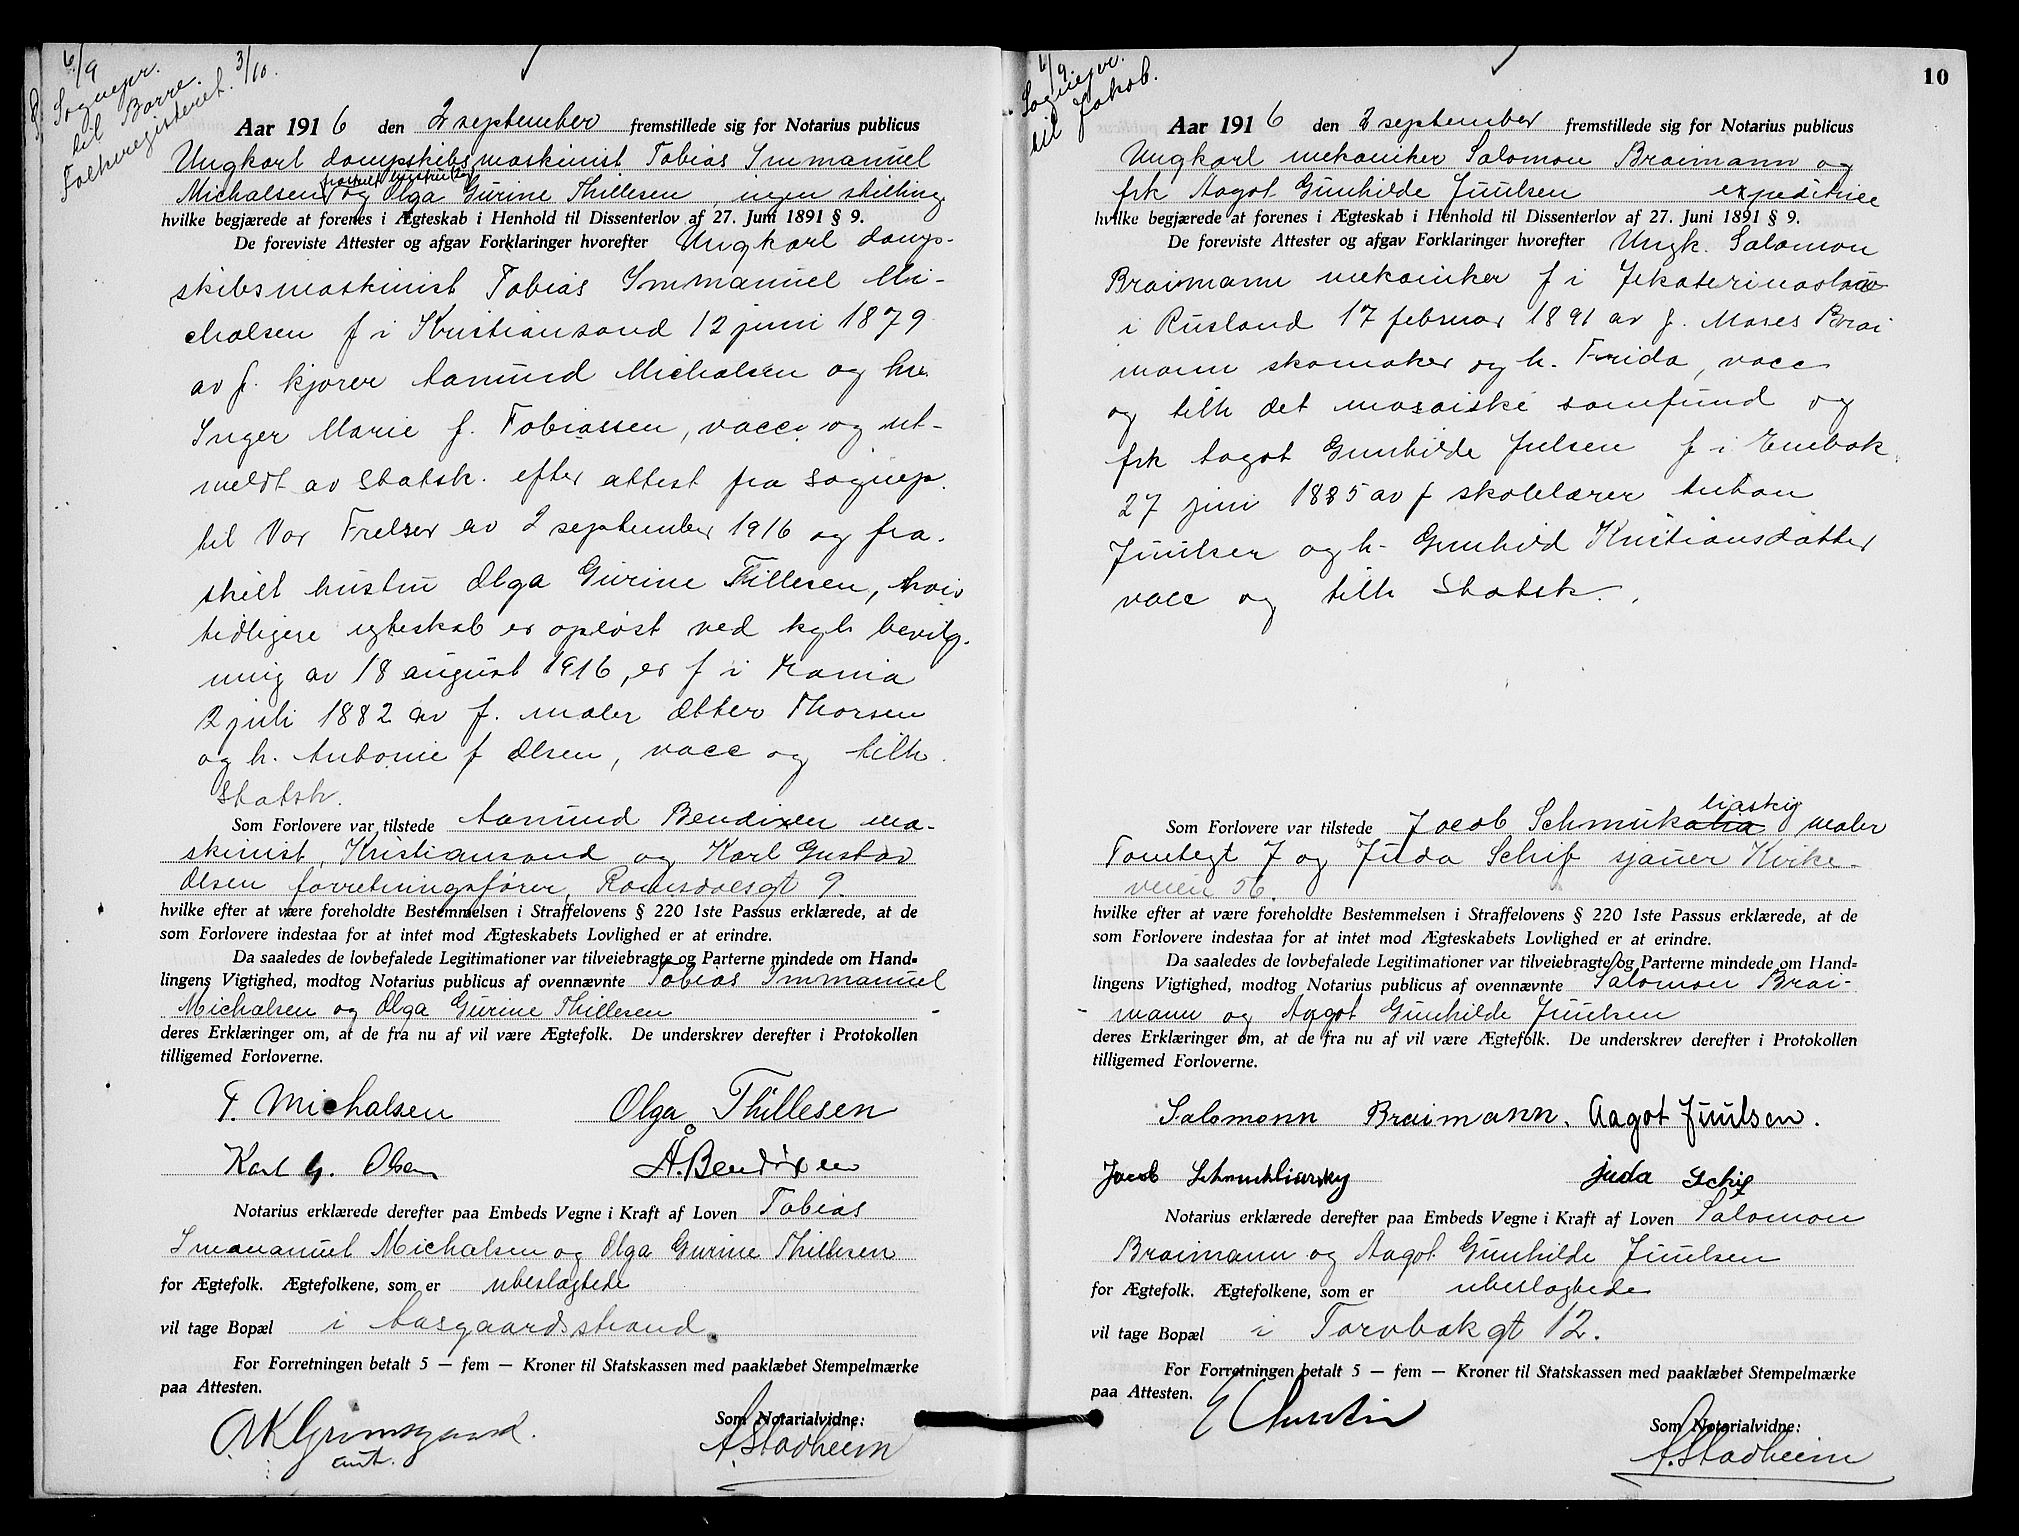 6/9
Sognepr.
til Borre.
Folkeregisteret. 3/10.
Aar 1916 den 2 september fremstillede sig for Notarius publicus
Ungkarl dampskibsmaskinist Tobias Immanuel
fraskilt hustru
Michalsen og Olga Gurine Thillesen, ingen stilling
hvilke begjærede at forenes i Ægteskab i Henhold til Dissenterlov af 27. Juni 1891 § 9.
De foreviste Attester og afgav Forklaringer hvorefter Ungkarl damp-
skibsmaskinist Tobias Immanuel Mi-
chalsen f i Kristiansand 12 juni 1879
av f. kjører Aanund Michalsen og hu
Inger Marie f. Tobiassen, vacc. og ut-
meldt av Statsk. efter attest fra sognep.
til Vor Frelser av 2 september 1916 og fra-
skilt hustru Olga Gurine Thillesen, hvis
tidligere egteskab er opløst ved kgl. bevilg-
ning av 18 august 1916, er f i Krania
2 juli 1882 av f. maler Otter Thorsen
og h. Antonie f Olsen, vacc og tilh.
Statsk.
Som Forlovere var tilstede Aanund Bendixen ma-
skinist, Kristiansand og Karl Gustav
Olsen forretningsfører, Romsdalsgt 9.
hvilke efter at være foreholdte Bestemmelsen i Straffelovens § 220 1ste Passus erklærede, at de
som Forlovere indestaa for at intet mod Ægteskabets Lovlighed er at erindre.
Da saaledes de lovbefalede Legitimationer var tilveiebragte og Parterne mindede om Hand-
lingens Vigtighed, modtog Notarius publicus af ovennævnte Tobias Immanuel
Michalsen og Olga Gurine Thillesen
deres Erklæringer om, at de fra nu af vil være Ægtefolk. De underskrev derefter i Protokollen
tilligemed Forloverne.
T. Michalsen Olga Thillesen
Karl G. Olsen Å. Bendixen
Notarius erklærede derefter paa Embeds Vegne i Kraft af Loven Tobias
Immanuel Michalsen og Olga Gurine Thillesen
for Ægtefolk. Ægtefolkene, som er ubeslagtede
vil tage Bopæl i Aasgaardstrand.
For Forretningen betalt 5 — fem — Kroner til Statskassen med paaklæbet Stempelmærke
paa Attesten.
Som Notarialvidne:
Grimsgaard.
A. Stadheim
6/9.
Sognepr.
til Jakob.
10
Aar 1916 den 2 september fremstillede sig for Notarius publicus
Ungkarl mekaniker Salomon Braimann og
frk Aagot Gunhilde Juulsen expeditrice
hvilke begjærede at forenes i Ægteskab i Henhold til Dissenterlov af 27. Juni 1891 § 9.
De foreviste Attester og afgav Forklaringer hvorefter Ungk. Salomon
Braimann mekaniker f i Jekaterinoslav
i Rusland 17 februar 1891 av f. Moses Brai
mann skomaker og h. Frida, vacc
og tilh det mosaiske samfund og
frk Aagot Gunhilde Julsen f i Enebak
27 juni 1885 av f skolelærer Anton
Juulsen og h. Gunhild Kristiansdatter
vacc og tilh Statsk.
liaskig
Som Forlovere var tilstede Jacob Schmuk maler
Tomtegt 7 og Juda Schif sjauer Kirke-
veien 56.
hvilke efter at være foreholdte Bestemmelsen i Straffelovens § 220 1ste Passus erklærede, at de
som Forlovere indestaa for at intet mod Ægteskabets Lovlighed er at erindre.
Da saaledes de lovbefalede Legitimationer var tilveiebragte og Parterne mindede om Hand-
lingens Vigtighed, modtog Notarius publicus af ovennævnte Salomon Brai-
mann og Aagot Gunhilde Juulsen
deres Erklæringer om, at de fra nu af vil være Ægtefolk. De underskrev derefter i Protokollen
tilligemed Forloverne.
Salomonn Braimann. Aagot Juulsen.
Jacob Schmukliarsky juda Schif
Notarius erklærede derefter paa Embeds Vegne i Kraft af Loven Salomon
Braimann og Aagot Gunhilde Juulsen
for Ægtefolk. Ægtefolkene, som er ubeslagtede
vil tage Bopæl i Torvbakgt 12.
For Forretningen betalt 5 — fem — Kroner til Statskassen med paaklæbet Stempelmærke
paa Attesten.
Som Notarialvidne:
A. Stadheim